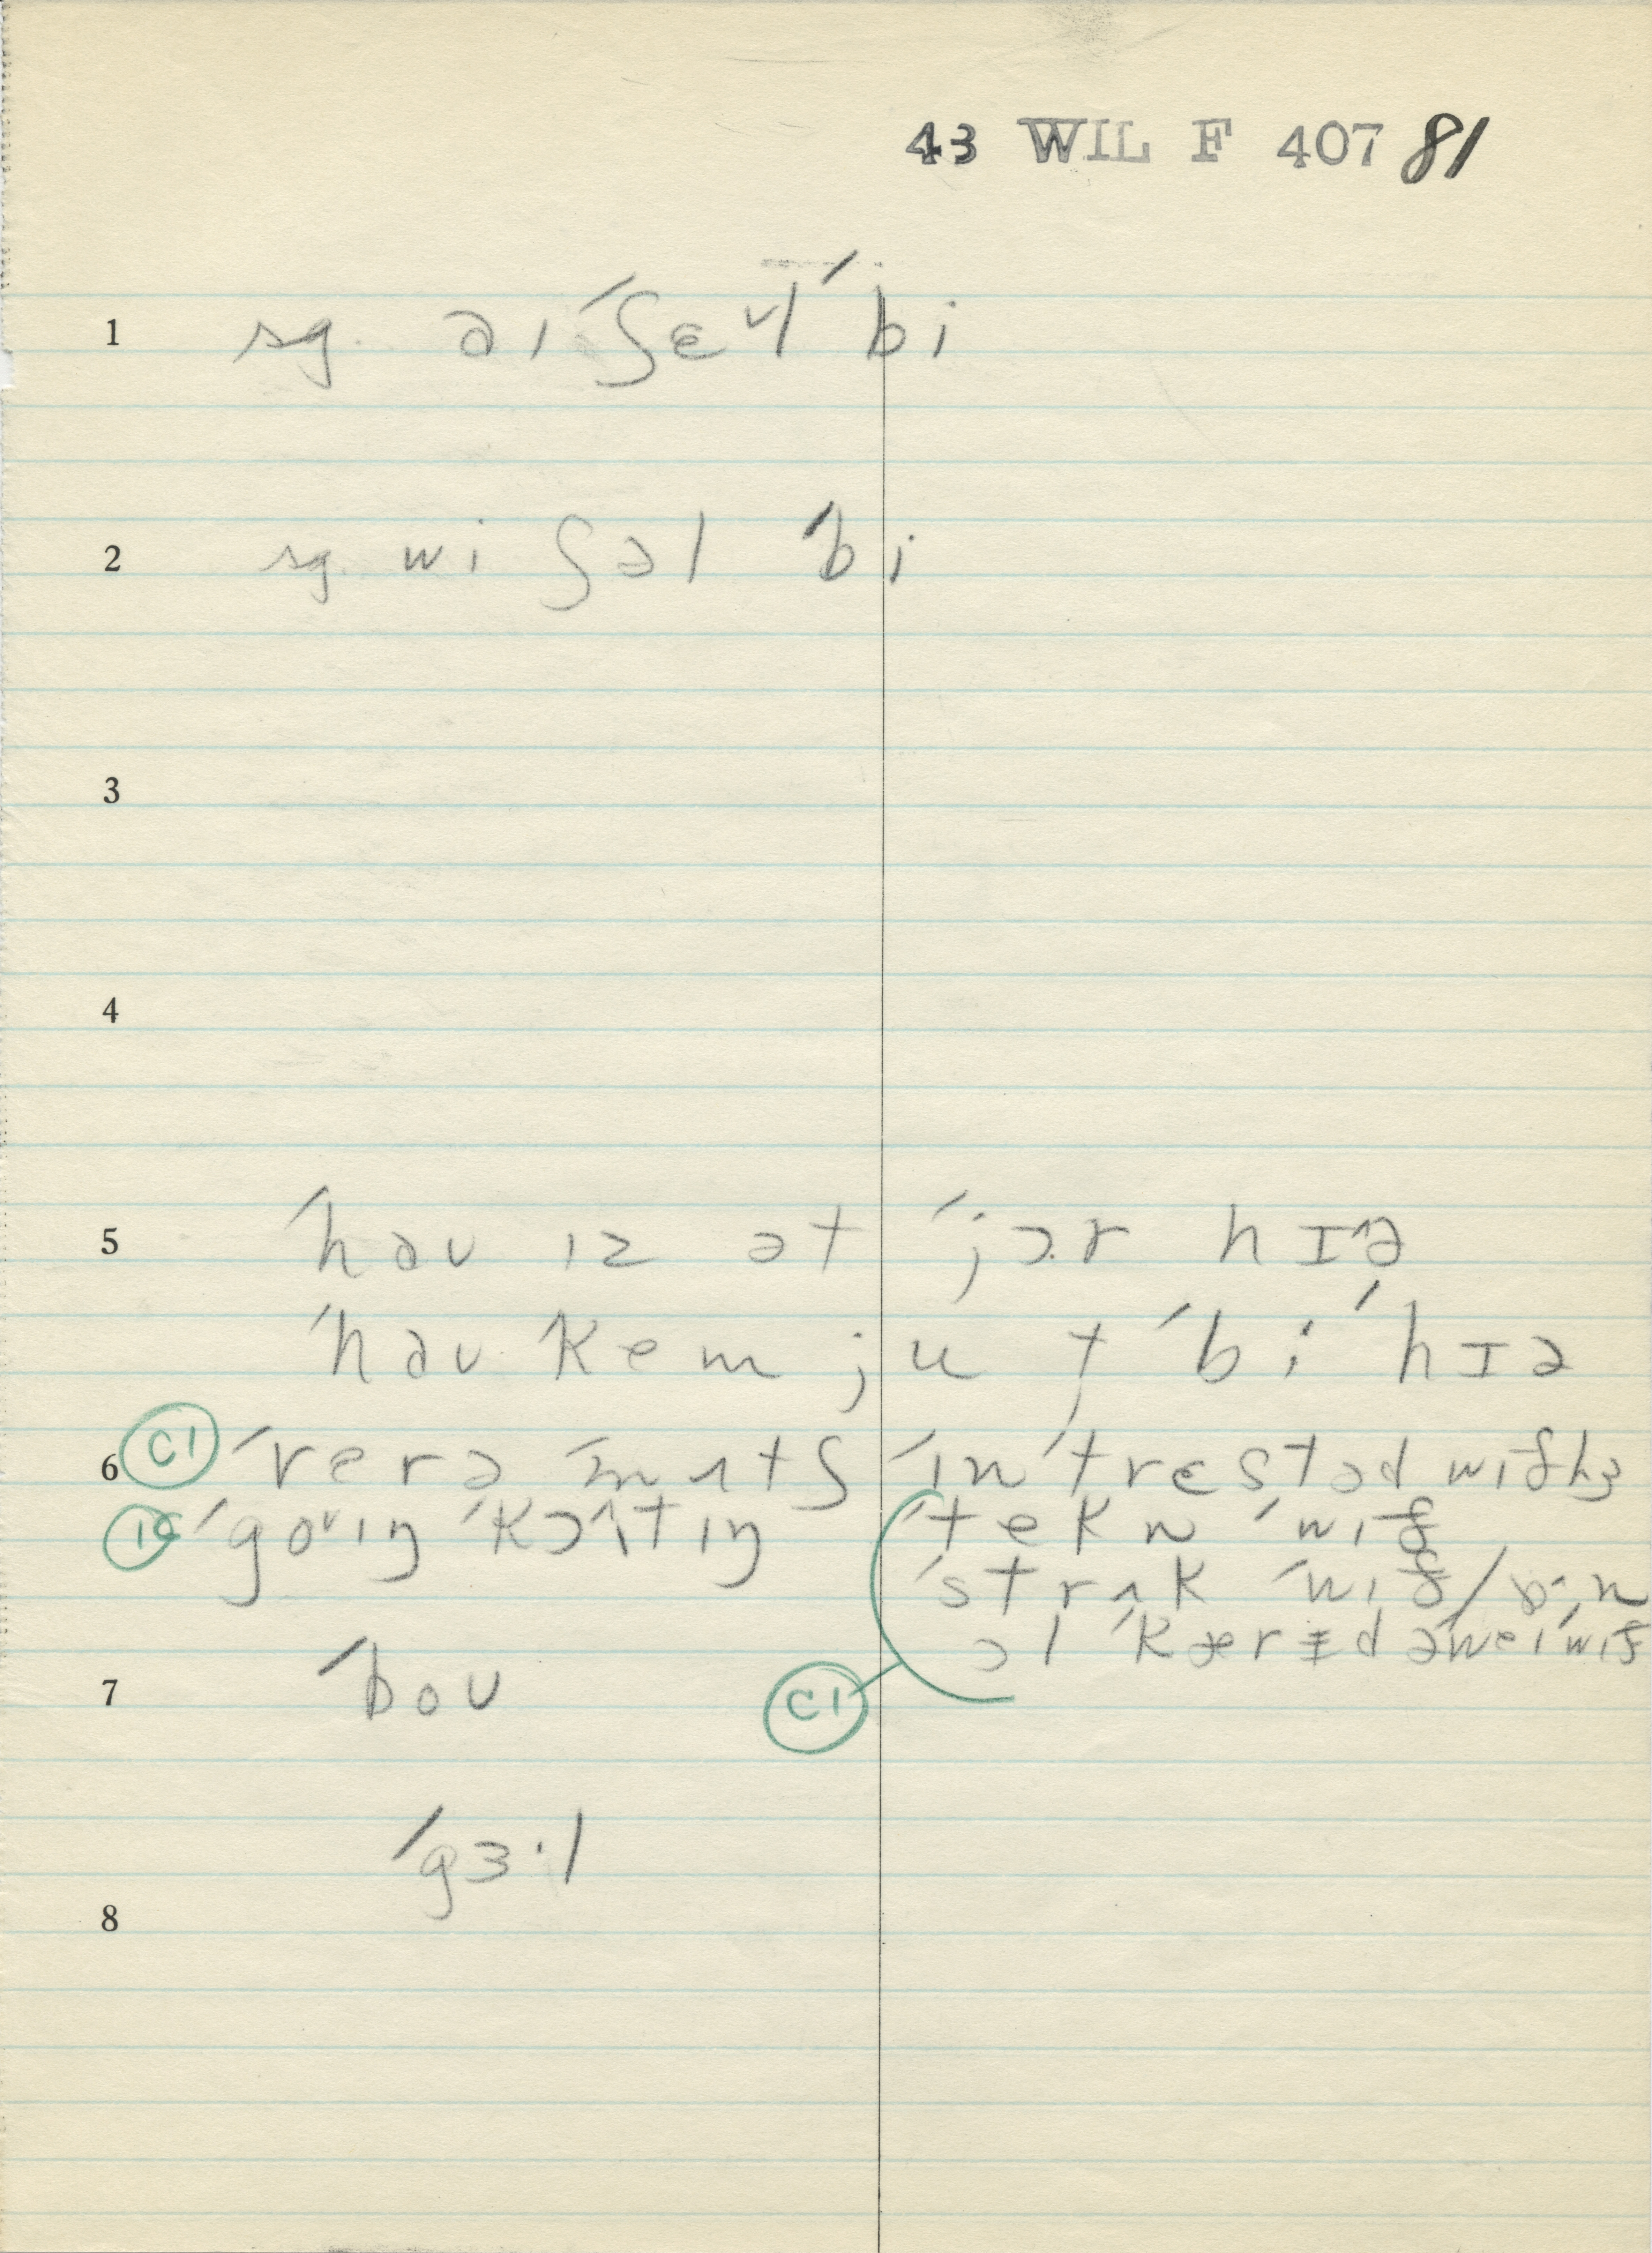 43 WIL F 407 81
1 sg. aɪ ˈʃɛᵊl ˈbi
2 sg. wi ʃəl ˈbi
3
4
5 ˈhaʊ ɪz ət ˈjɔ.r hɪᵊ
ˈhaʊ kem ju t ˈbi ˈhɪə
6 C1 ˈverə ˈmʌtʃ ˈɪnˈtrɛstəd wɪð hɜ
1G ˈgoʊɪŋ ˈkɔʳtɪŋ ˈtekn ˈwɪð
ˈstrʌk ˈwɪð /
7 ˈboʊ C1 ɔl ˈkærɪd əˈweɪ wɪð
ˈgɜ·l
8